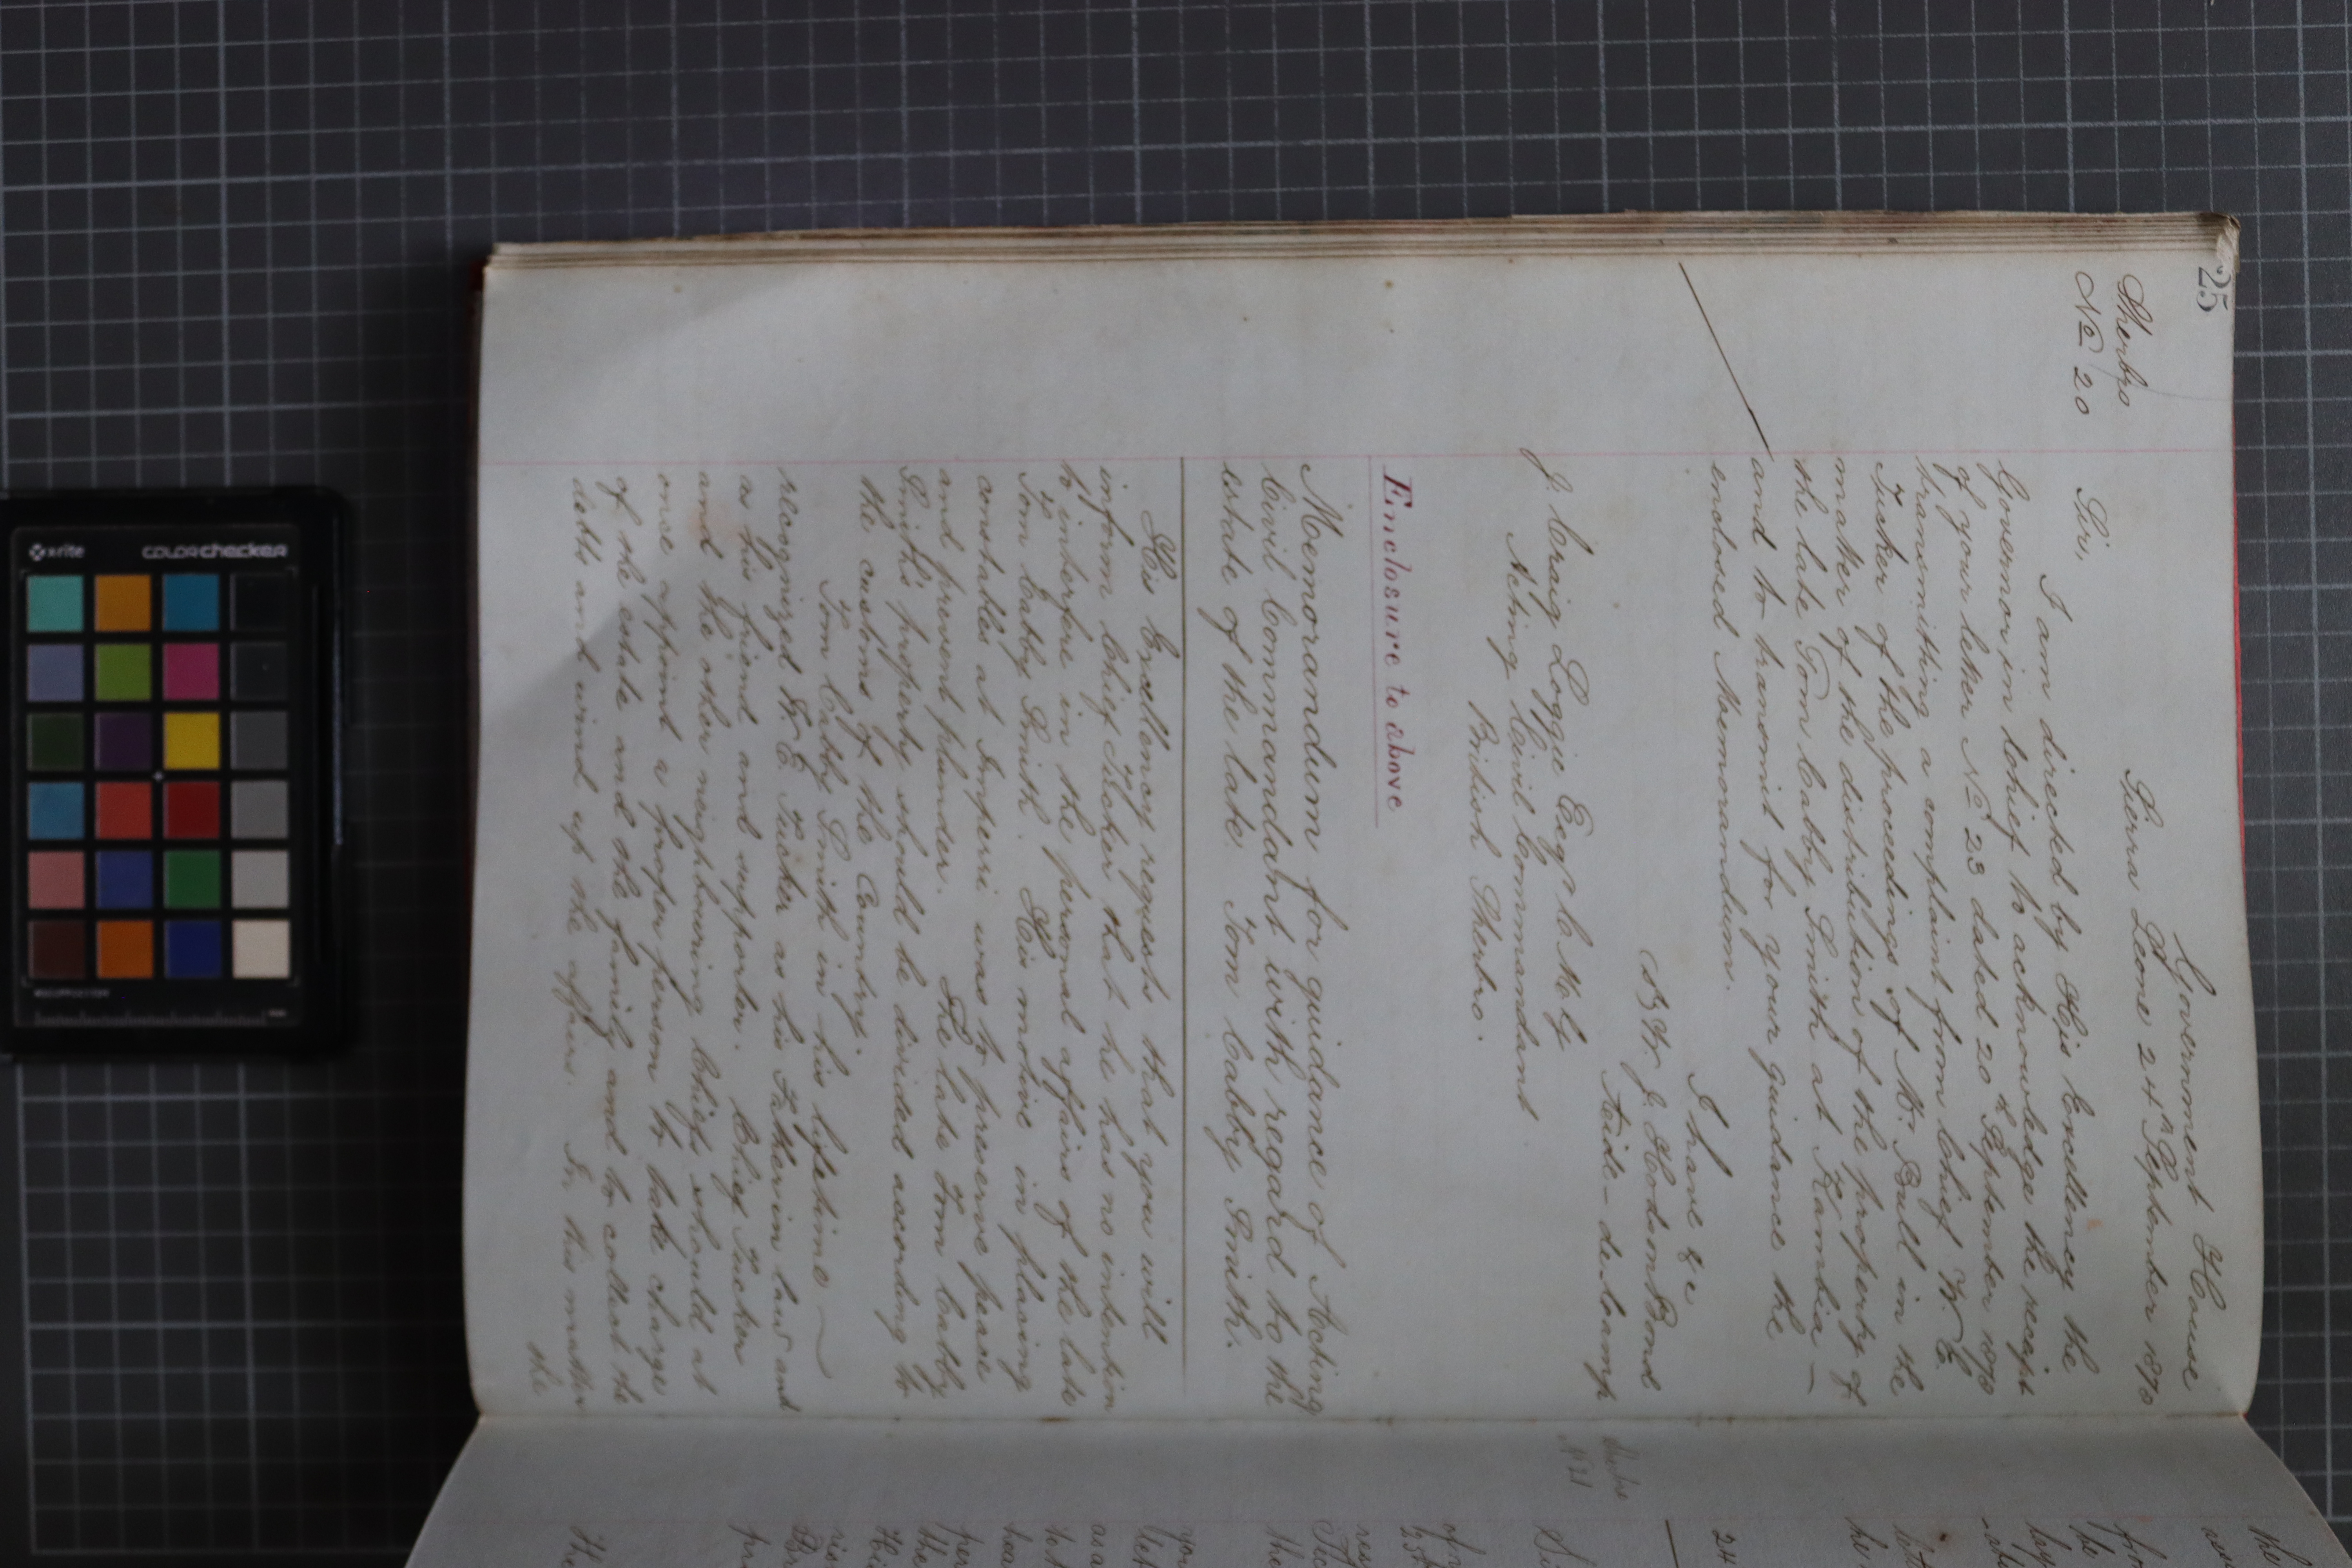 25
Sherbro
No 20
Government House
Sierra Leone 24th September 1870
Sir,
I am directed by His Excellency the
Governor in Chief to acknowledge the receipt
of your letter No 23 dated 20th September 1870
transmitting a complaint from Chief W. E.
Tucker of the proceedings of Mr. Bull in the
matter of the distribution of the property of
the late Tom Cabby Smith at Kambia –
and to transmit for your guidance the
enclosed Memorandum.
I have &c
W. J. Hodson Bond
Aide-de-Camp
J. Craig Loggie Esqr
Acting Civil Commandant
British Sherbro.
Enclosure to above
Memorandum for guidance of Acting
Civil Commandant with regard to the
estate of the late Tom Cabby Smith.
His Excellency requests that you will
inform Chief Tucker that he has no intention
to interfere in the personal affairs of the late
Tom Cabby Smith. His motive in placing
constables at Imperri was to preserve peace
and prevent plunder. The late Tom Cabby
Smith's property should be divided according to
the customs of the Country.
Tom Cabby Smith in his lifetime
recognized W. E. Tucker as his Father in law and
as his friend and supporter. Chief Tucker
and the other neighbouring Chiefs should at
once appoint a proper person to take charge
of the estate and the family and to collect the
debts and wind up the affairs. In this matter
the
Sherbro
No 21
24